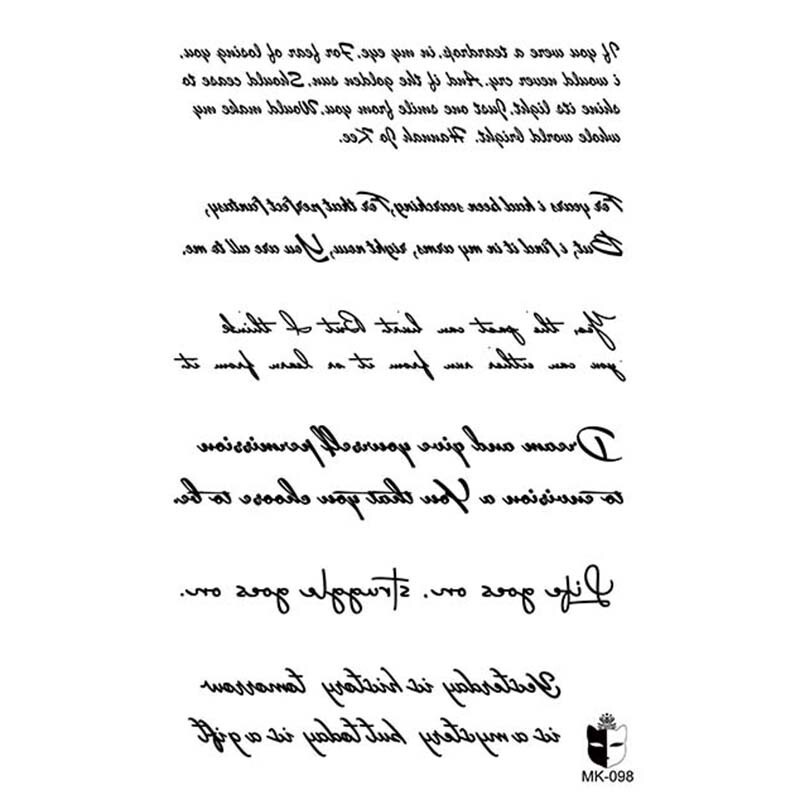 If you were a teardrop.in my eye.For fear of losing you.
i would never cry.And if the golden sun.Should cease to
shine its light.Just one smile from you.Would make my
whole world bright. Hannah Jo Kee.
For years i had been searching,For that perfect fantasy,
But, i find it in my arms, right now, You are all to me.
Yes, the past can hurt But I think
you can either run from it or learn from it
Dream and give yourself permission
to envision a You that you choose to be.
Life goes on. struggle goes on.
Yesterday is history tomorrow
is a mystery but today is a gift
MK-098